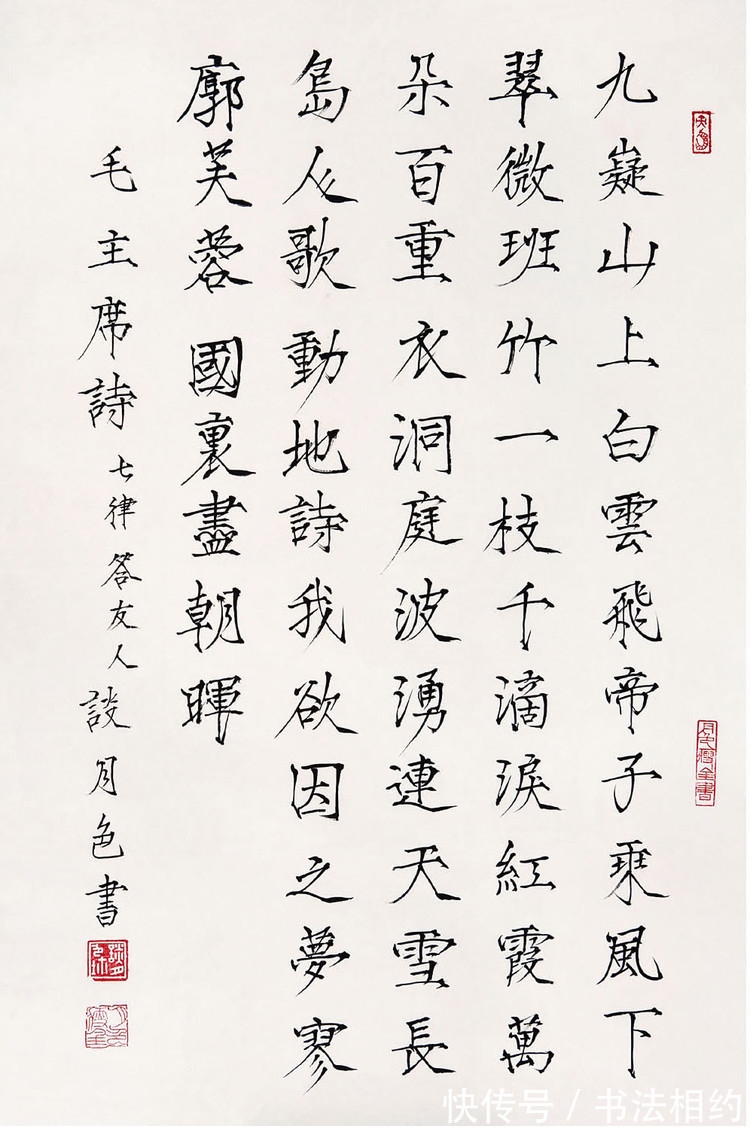 九嶷山上白雲飛帝子乘風下
翠微班竹一枝千滴淚紅霞萬
朵百重衣洞庭波湧連天雪長
島人歌動地詩我欲因之夢寥
廓芙蓉國裏盡朝暉
毛主席詩七律答友人談月色書
快传号 / 书法相约